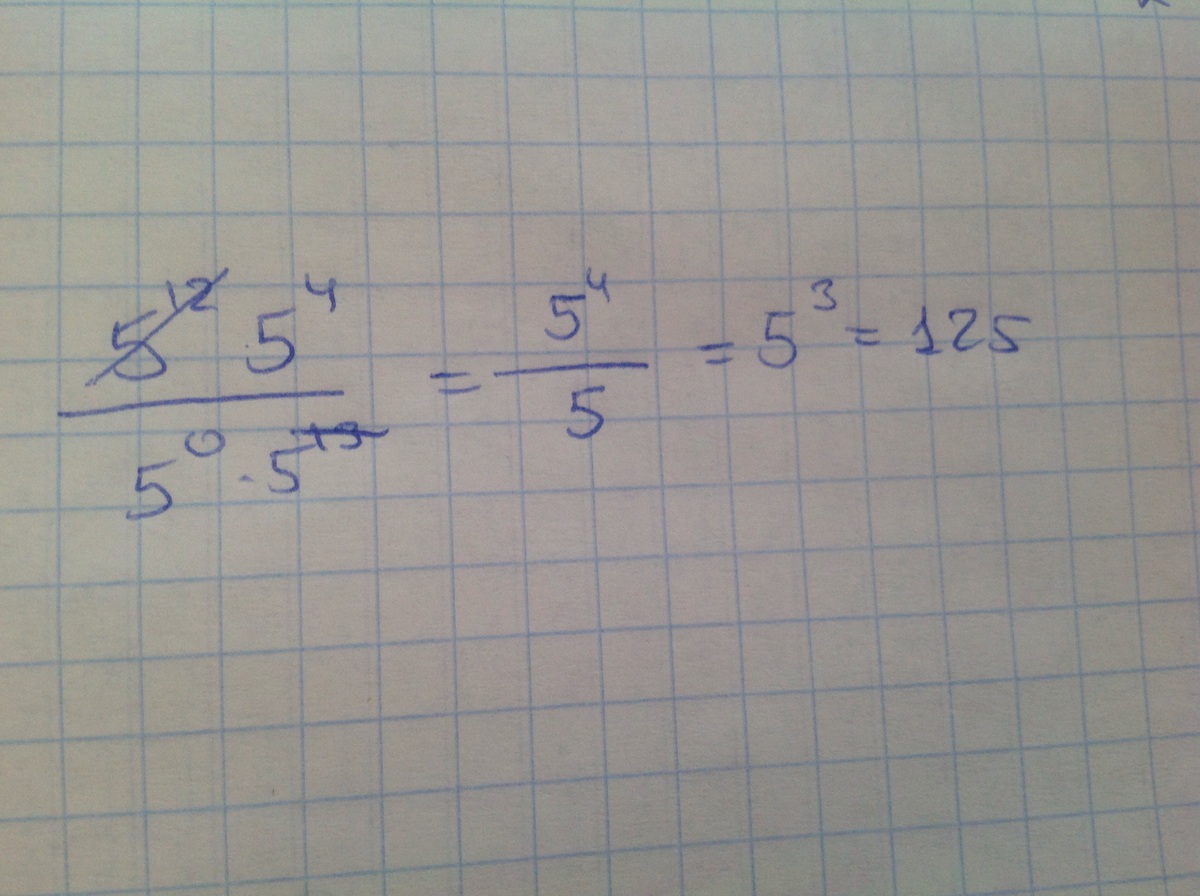 5¹² · 5⁴ / 5⁰ · 5¹³ = 5⁴ / 5 = 5³ = 125